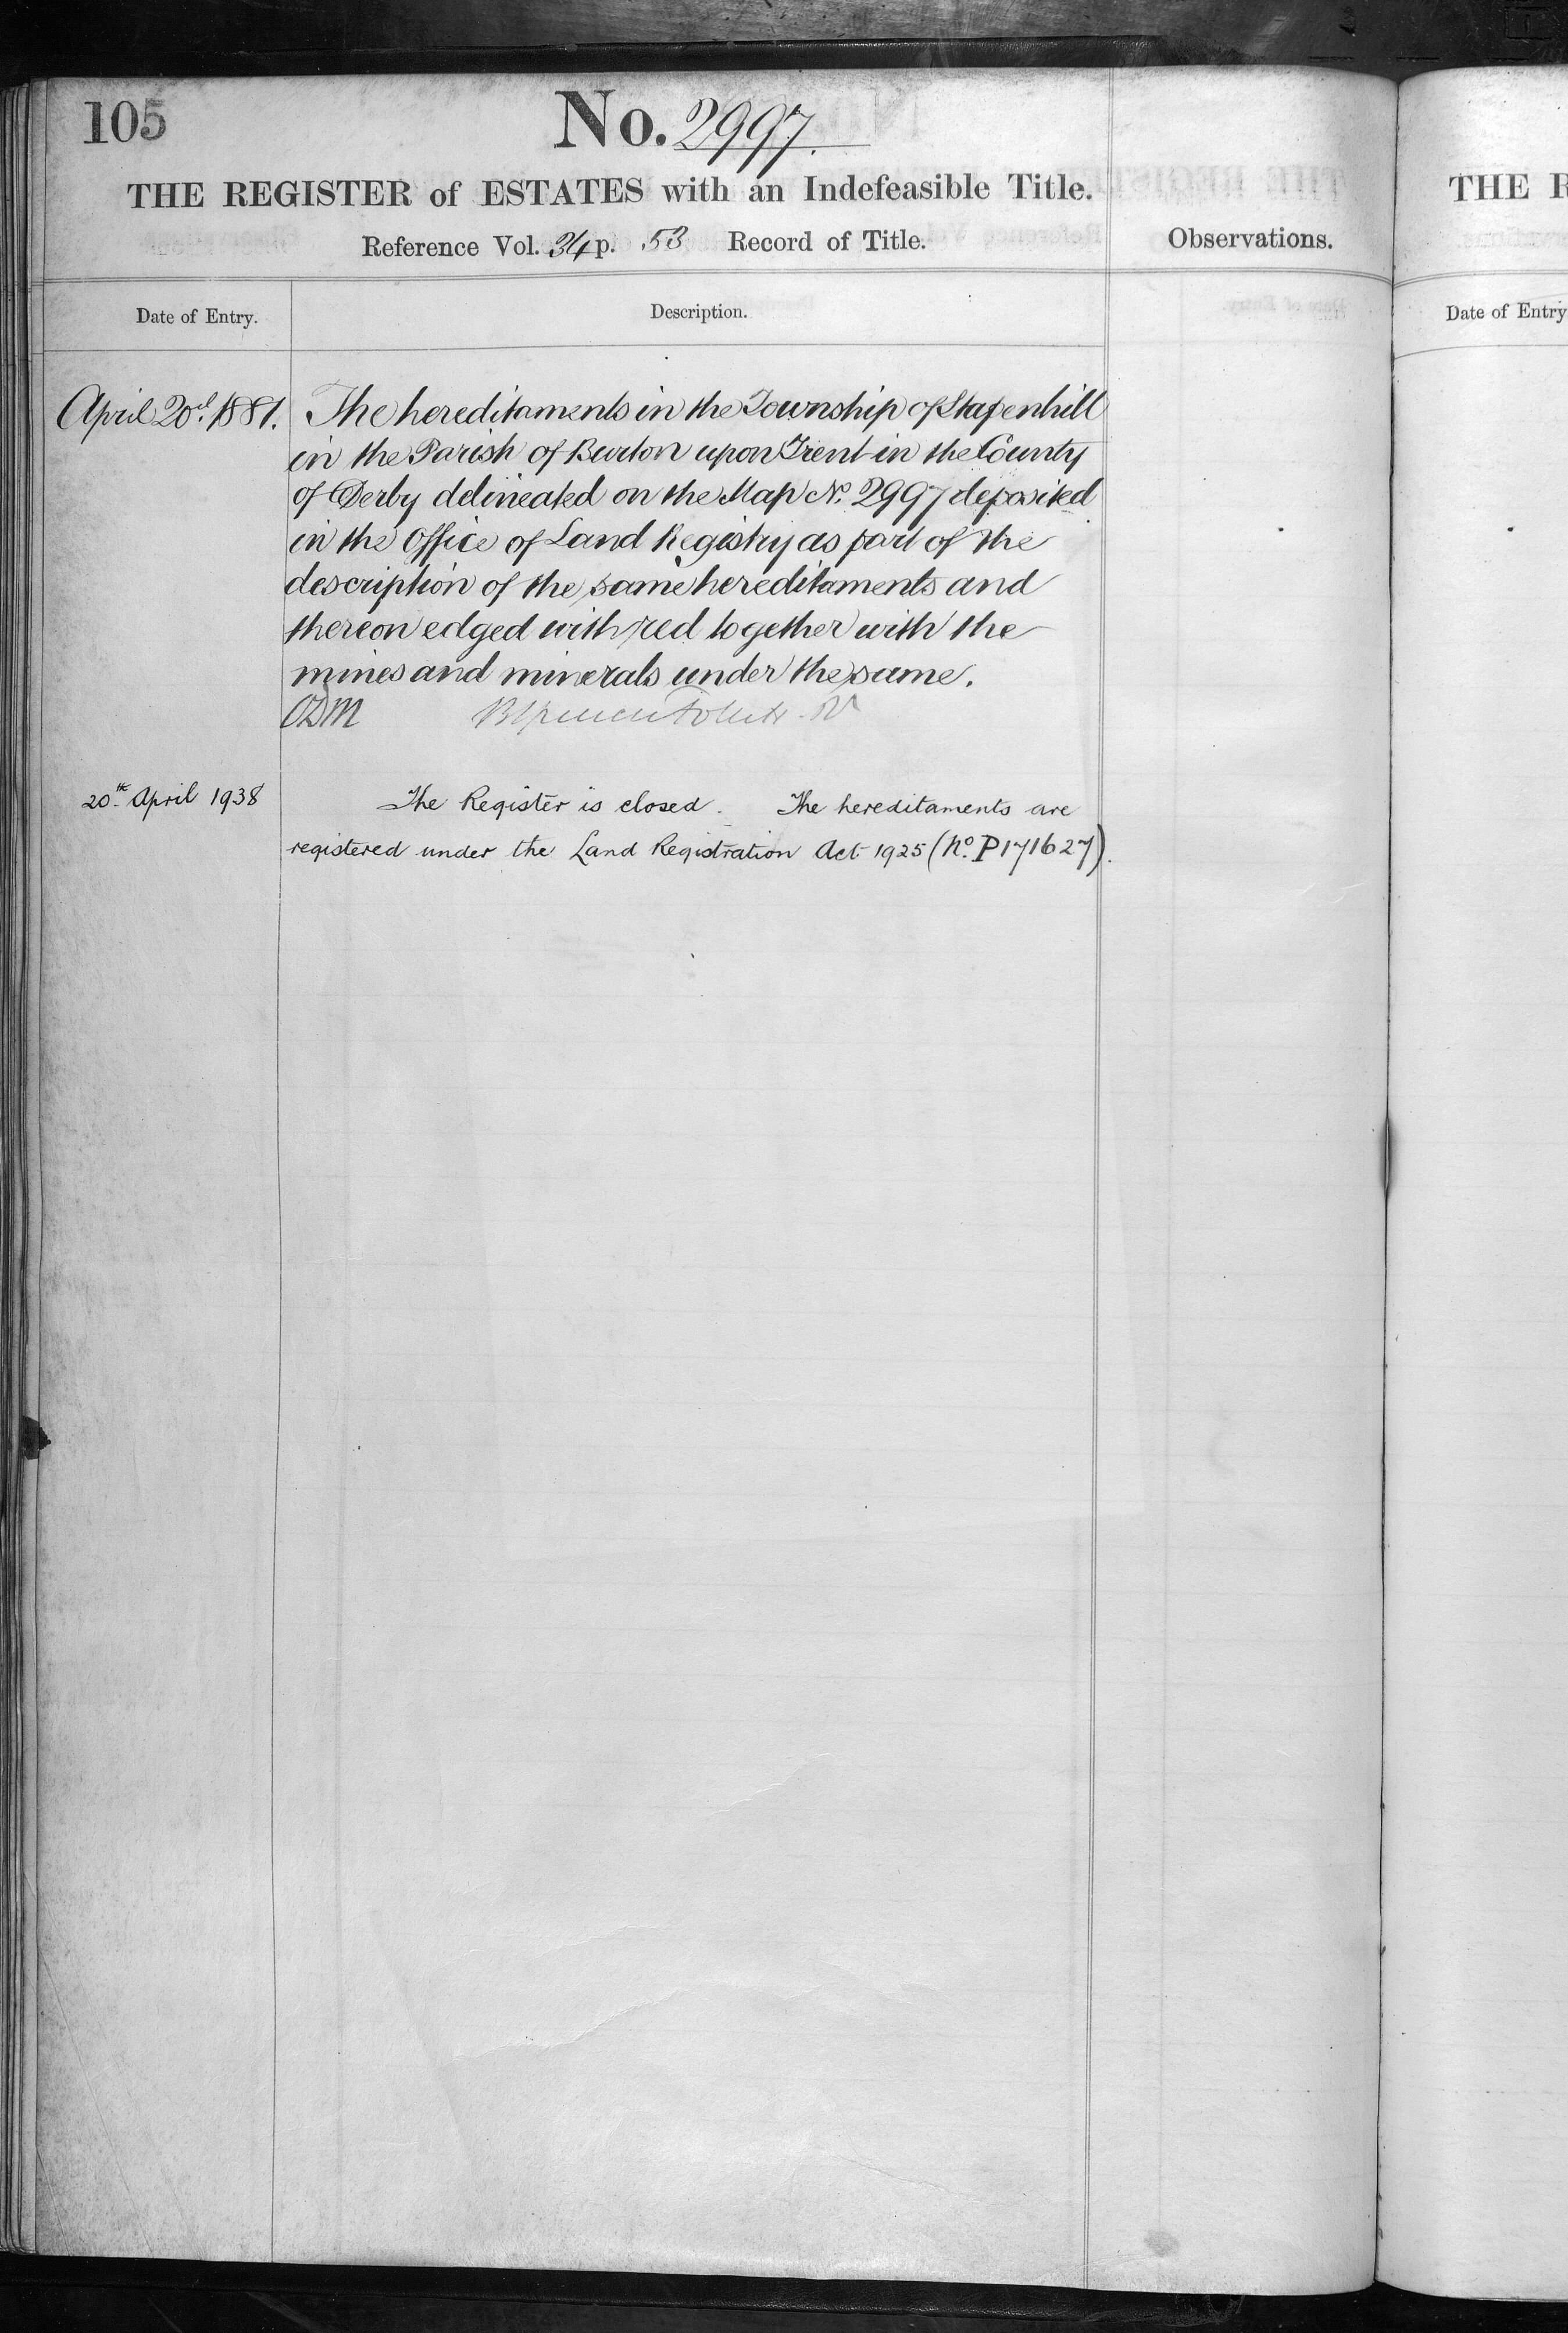 105
No. 2997.
THE REGISTER of ESTATES with an Indefeasible Title.
Reference Vol. 34 p. 53 Record of Title.
Observations.
Date of Entry.
Description.
April 20th. 1881. The hereditaments in the Township of Stapenhill
in the Parish of Burton upon Trent in the County
of Derby delineated on the Map No. 2997 deposited
in the Office of Land Registry as part of the
description of the same hereditaments and
thereon edged with red together with the
mines and minerals under the same.
20th. April 1938 The Register is closed. The hereditaments are
registered under the Land Registration Act 1925 (No. P171627).
THE R
Date of Entry